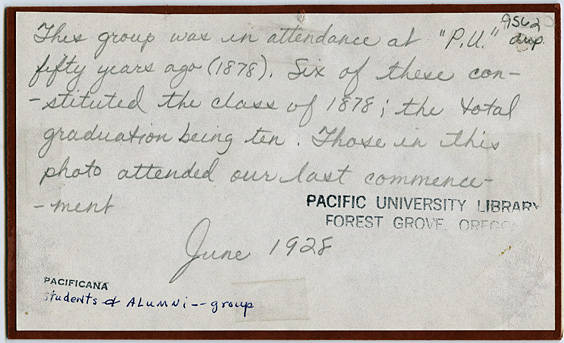 9562
dup.
This group was in attendance at "P.U."
fifty years ago (1878). Six of these con-
-stituted the class of 1878; the total
graduation being ten. Those in this
photo attended our last commence-
-ment
PACIFIC UNIVERSITY LIBRARY
FOREST GROVE, OREGON
June 1928
PACIFICANA
Students & ALUMNI -- group